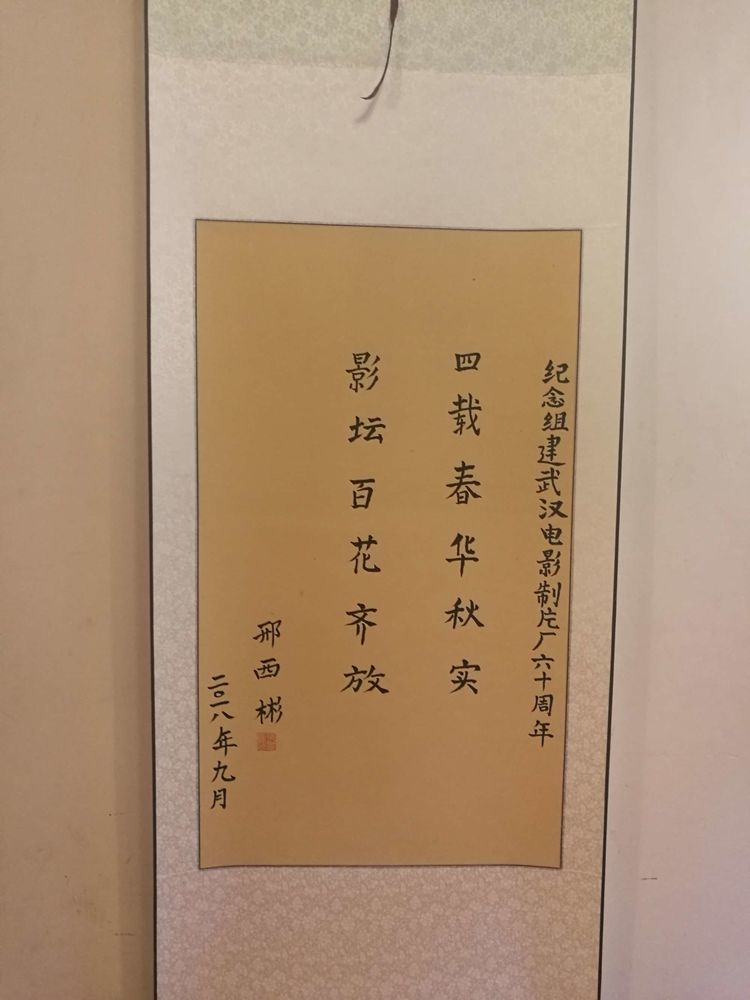 纪念组建武汉电影制片厂六十周年
四载春华秋实
影坛百花齐放
邢西彬
二〇一八年九月